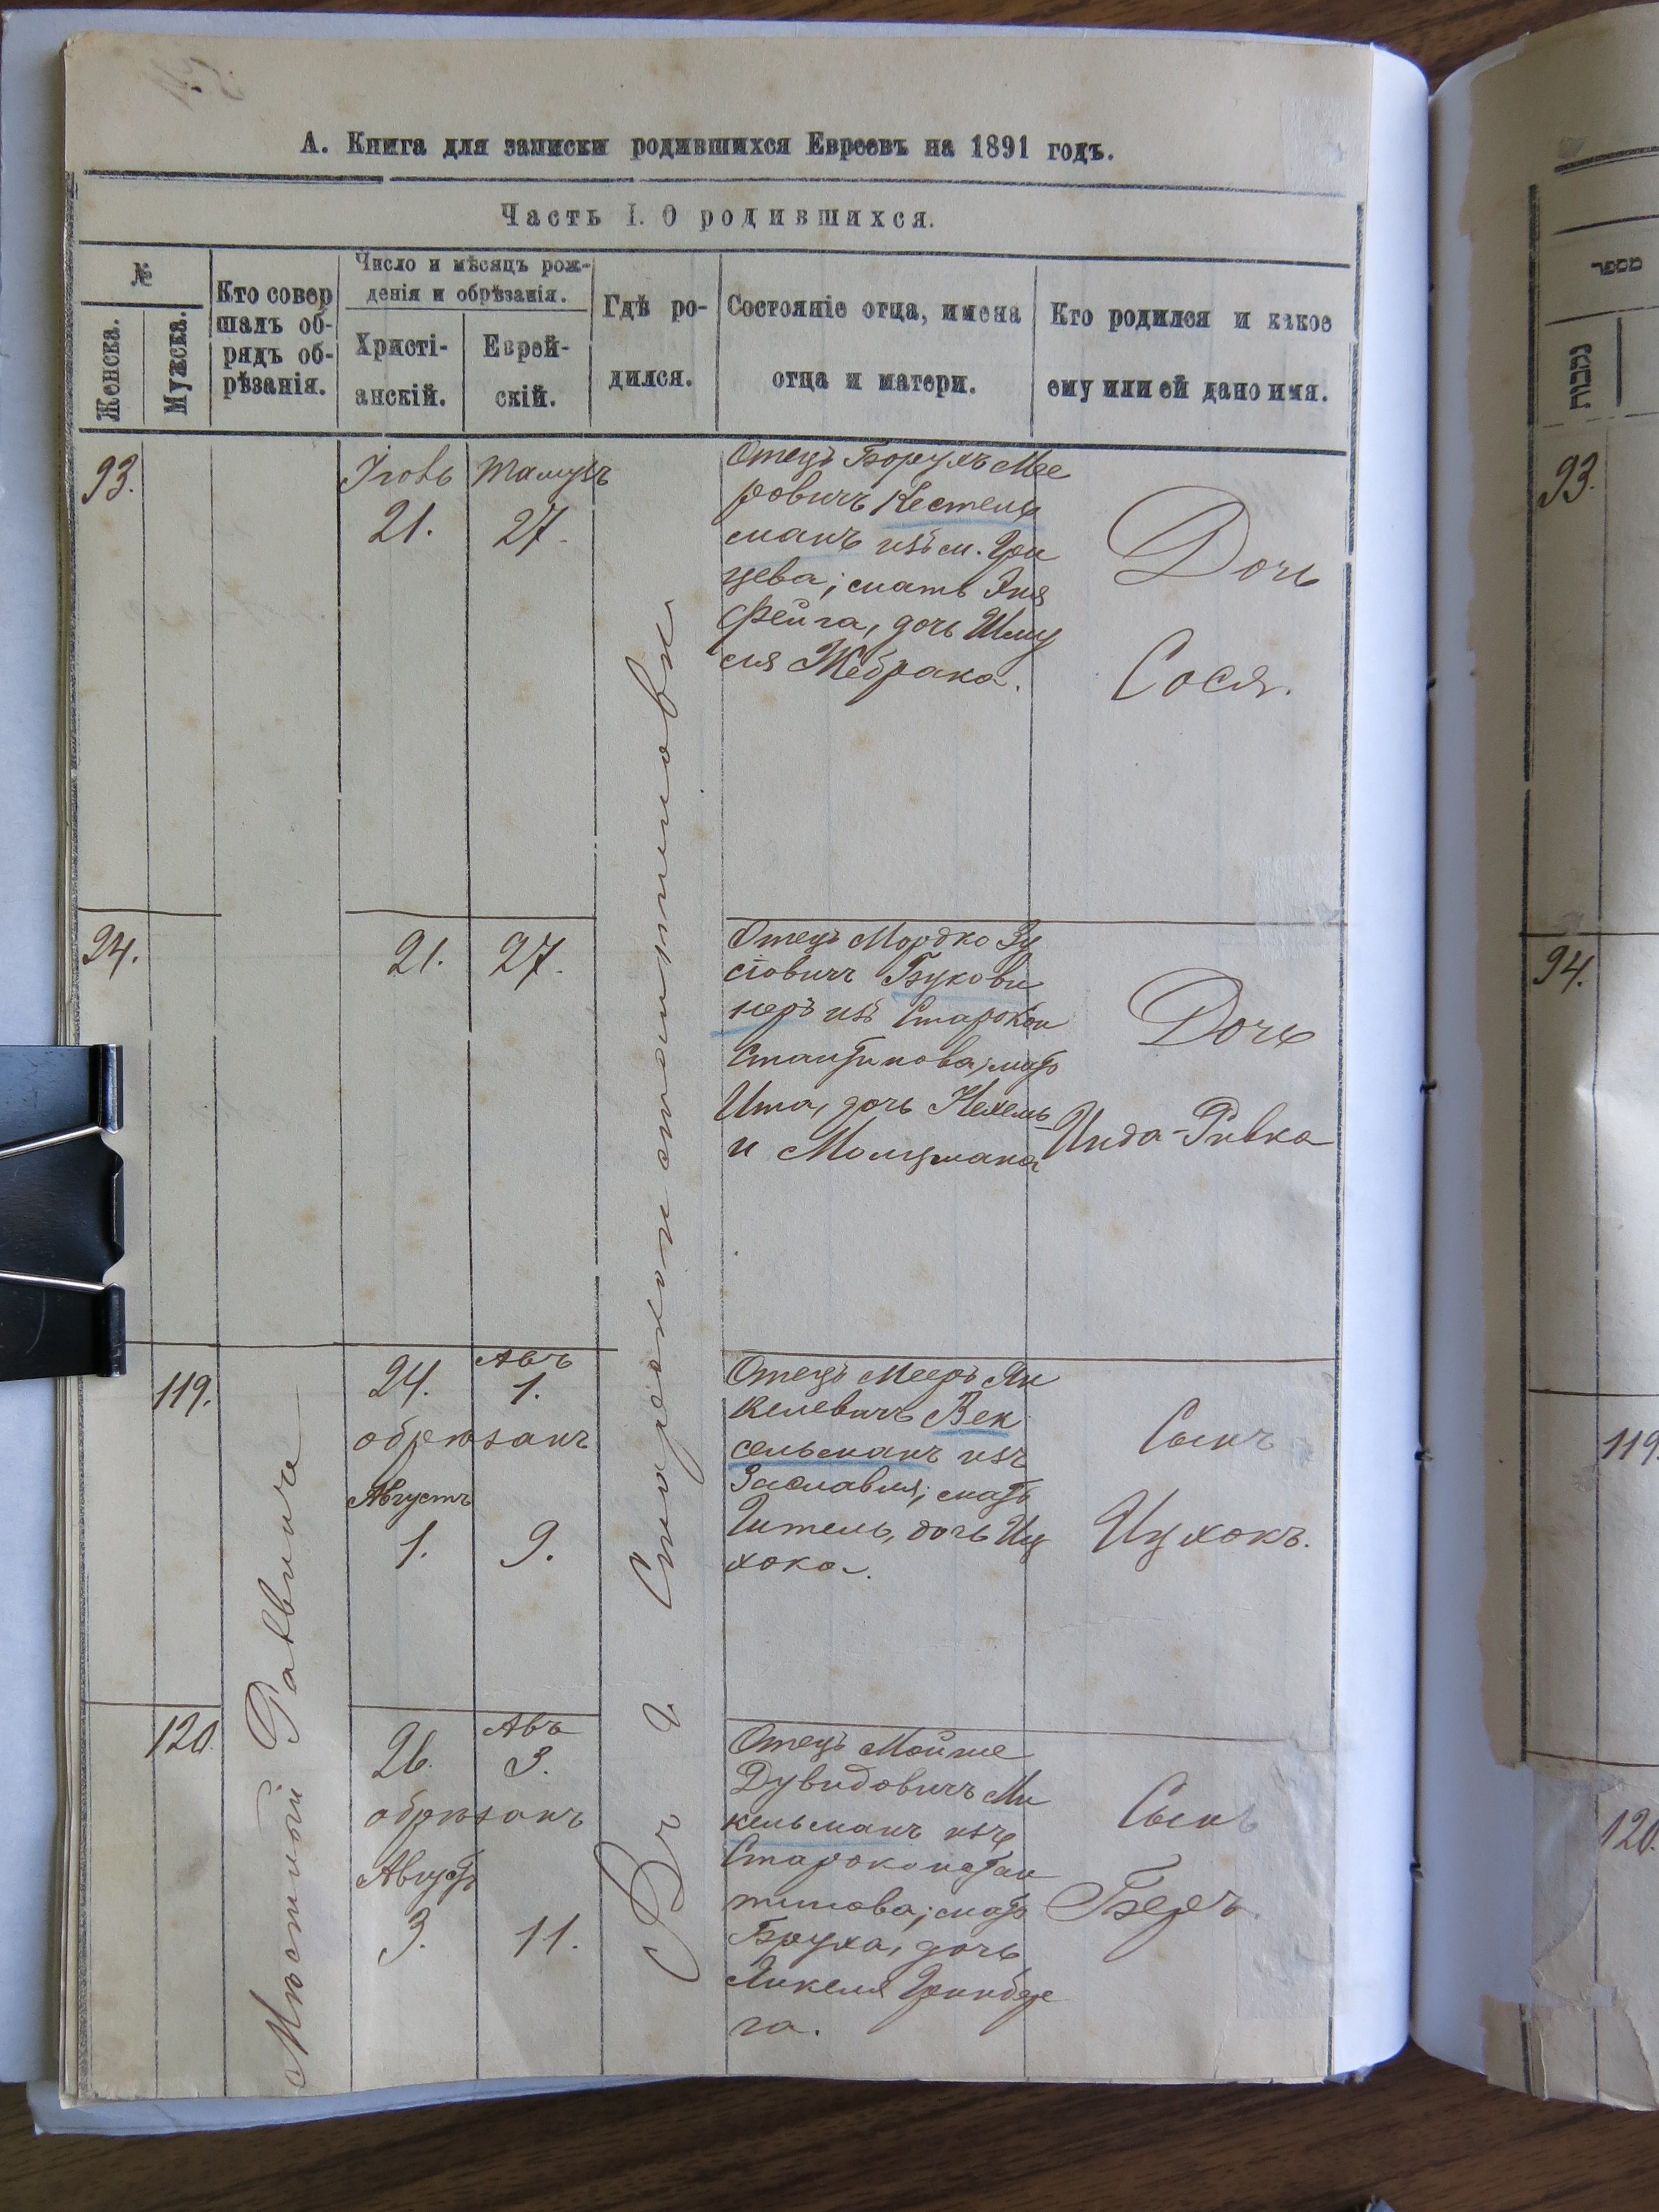 А. Книга для записки родившихся Евреевъ на 1891 годъ.
Часть I. О родившихся.
№
Женска.
Мужска.
Кто совер
шалъ об-
рядъ об-
рѣзанія.
Число и мѣсяцъ рож-
денія и обрѣзанія.
Христі-
анскій.
Еврей-
скій.
Гдѣ ро-
дился.
Состояніе отца, имена
отца и матери.
Кто родился и какое
ему или ей дано имя.
Мѣстный Раввинъ
Въ г Староконстантиновѣ
93.
Іюль
21.
Тамузъ
27.
Отецъ Борухъ Мее
ровичъ Кестель
манъ изъ м. Гри
цева; мать
Фейга, дочь Шму
ля Жебрака.
Дочь
Сося.
94.
21.
27.
Отецъ Мордко Зу
сіовичъ Букови
неръ изъ Старокон
стантинова; мать
Ита, дочь
и Молцмана
Дочь
Инда-Ривка
119.
24.
Авъ
1.
обрѣзанъ
Августъ
1.
9.
Отецъ Мееръ Ян
келевичъ Век
сельманъ изъ
Заславля; мать
Гитель, дочь Иц
хока.
Сынъ
Ицхокъ.
120.
26.
Авъ
3.
обрѣзанъ
Августъ
3.
11.
Отецъ Мойше
Дувидовичъ Ми
кельманъ изъ
Староконстан
тинова; мать
Бруха, дочь
Янкеля Гринбер
га.
Сынъ
Беръ.
מספר
נקבות
93.
94.
119
120.